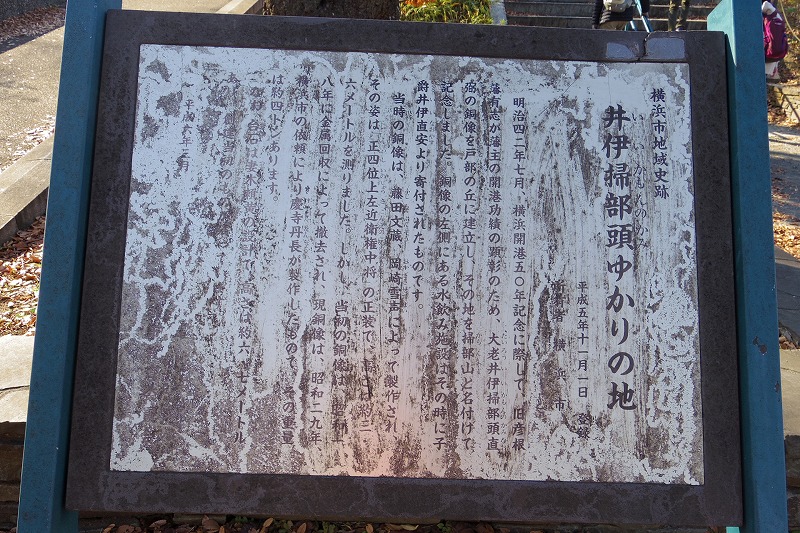 横浜市地域史跡
いいかもんのかみ
井伊掃部頭ゆかりの地
平成五年十一月一日 登録
所有者 横浜市
明治四二年七月、横浜開港五〇年記念に際して、旧彦根
藩有志が藩主の開港功績の顕彰のため、大老井伊掃部頭直
弼の銅像を戸部の丘に建立し、その地を掃部山と名付けて
記念しました。銅像の左側にある水飲み施設はその時に子
爵井伊直安より寄付されたものです。
当時の銅像は、藤田文蔵、岡崎雪声によって製作され、
その姿は「正四位上左近衛権中将」の正装で、高さは約三・
六メートルを測りました。しかし、当初の銅像は、昭和一
八年に金属回収によって撤去され、現銅像は、昭和二九年
横浜市の依頼により慶寺丹長が製作したもので、その重量
は約四トンあります。
なお、台石は
高さは約六・七メートル
創建当初のもの
平成六年三月